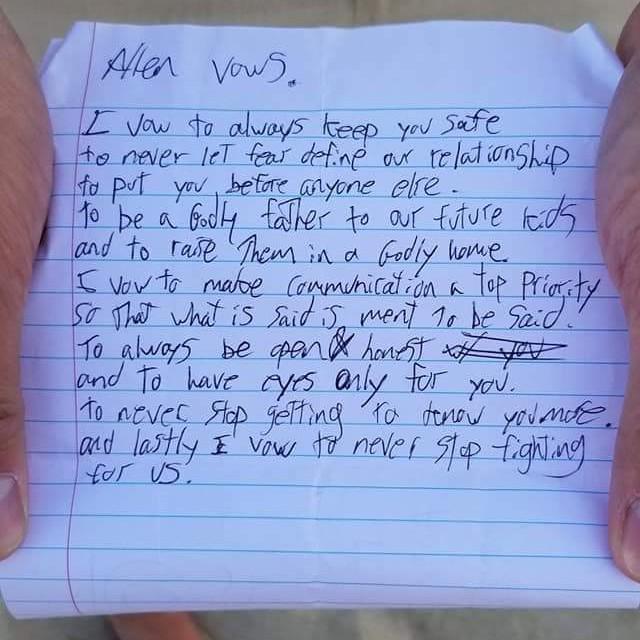 Allen Vows.
I vow to always keep you safe
to never let fear define our relationship
to put you before anyone else.
to be a Godly father to our future kids
and to raise Them in a Godly home.
I vow to make Communication a top Priority
so That what is said is ment to be said.
To always be open & honest
and to have eyes only for you.
to never stop getting to know you more.
and lastly I vow to never stop fighting
for us.